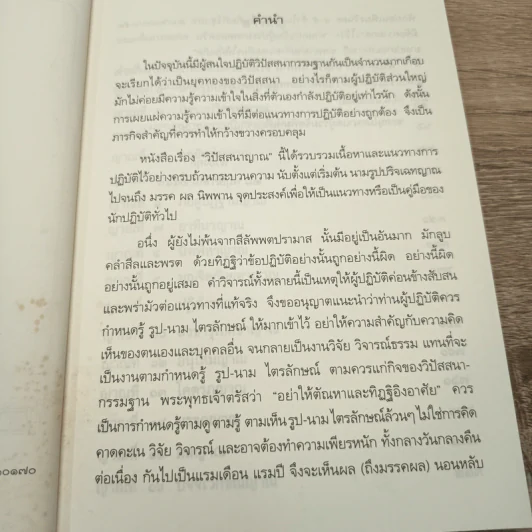 คำนำ
ในปัจจุบันนี้มีผู้สนใจปฏิบัติวิปัสสนากรรมฐานกันเป็นจำนวนมากเกือบ
จะเรียกได้ว่าเป็นยุคทองของวิปัสสนา อย่างไรก็ตามผู้ปฏิบัติส่วนใหญ่
มักไม่ค่อยมีความรู้ความเข้าใจในสิ่งที่ตัวเองกำลังปฏิบัติอยู่เท่าไรนัก ดังนั้น
การเผยแผ่ความรู้ความเข้าใจที่มีต่อแนวทางการปฏิบัติอย่างถูกต้อง จึงเป็น
ภารกิจสำคัญที่ควรทำให้กว้างขวางครอบคลุม
หนังสือเรื่อง "วิปัสสนาญาณ" นี้ได้รวบรวมเนื้อหาและแนวทางการ
ปฏิบัติไว้อย่างครบถ้วนกระบวนความ นับตั้งแต่เริ่มต้น นามรูปปริจเฉทญาณ
ไปจนถึง มรรค ผล นิพพาน จุดประสงค์เพื่อให้เป็นแนวทางหรือเป็นคู่มือของ
นักปฏิบัติทั่วไป
อนึ่ง ผู้ยังไม่พ้นจากสีลัพพตปรามาส นั้นมีอยู่เป็นอันมาก มักลูบ
คลำสีลและพรต ด้วยทิฏฐิว่าข้อปฏิบัติอย่างนั้นถูกอย่างนี้ผิด อย่างนี้ผิด
อย่างนั้นถูกอยู่เสมอ คำวิจารณ์ทั้งหลายนี้เป็นเหตุให้ผู้ปฏิบัติค่อนข้างสับสน
และพร่ามัวต่อแนวทางที่แท้จริง จึงขออนุญาตแนะนำว่าท่านผู้ปฏิบัติควร
กำหนดรู้ รูป-นาม ไตรลักษณ์ ให้มากเข้าไว้ อย่าให้ความสำคัญกับความคิด
เห็นของตนเองและบุคคลอื่น จนกลายเป็นงานวิจัย วิจารณ์ธรรม แทนที่จะ
เป็นงานตามกำหนดรู้ รูป-นาม ไตรลักษณ์ ตามควรแก่กิจของวิปัสสนา-
กรรมฐาน พระพุทธเจ้าตรัสว่า "อย่าให้ตัณหาและทิฏฐิอิงอาศัย" ควร
เป็นการกำหนดรู้ตามดู ตามรู้ ตามเห็น รูป-นาม ไตรลักษณ์ล้วนๆ ไม่ใช่การคิด
คาดคะเน วิจัย วิจารณ์ และอาจต้องทำความเพียรหนัก ทั้งกลางวันกลางคืน
ต่อเนื่อง กันไปเป็นแรมเดือน แรมปี จึงจะเห็นผล (ถึงมรรคผล) นอนหลับ
๐๑๗๐